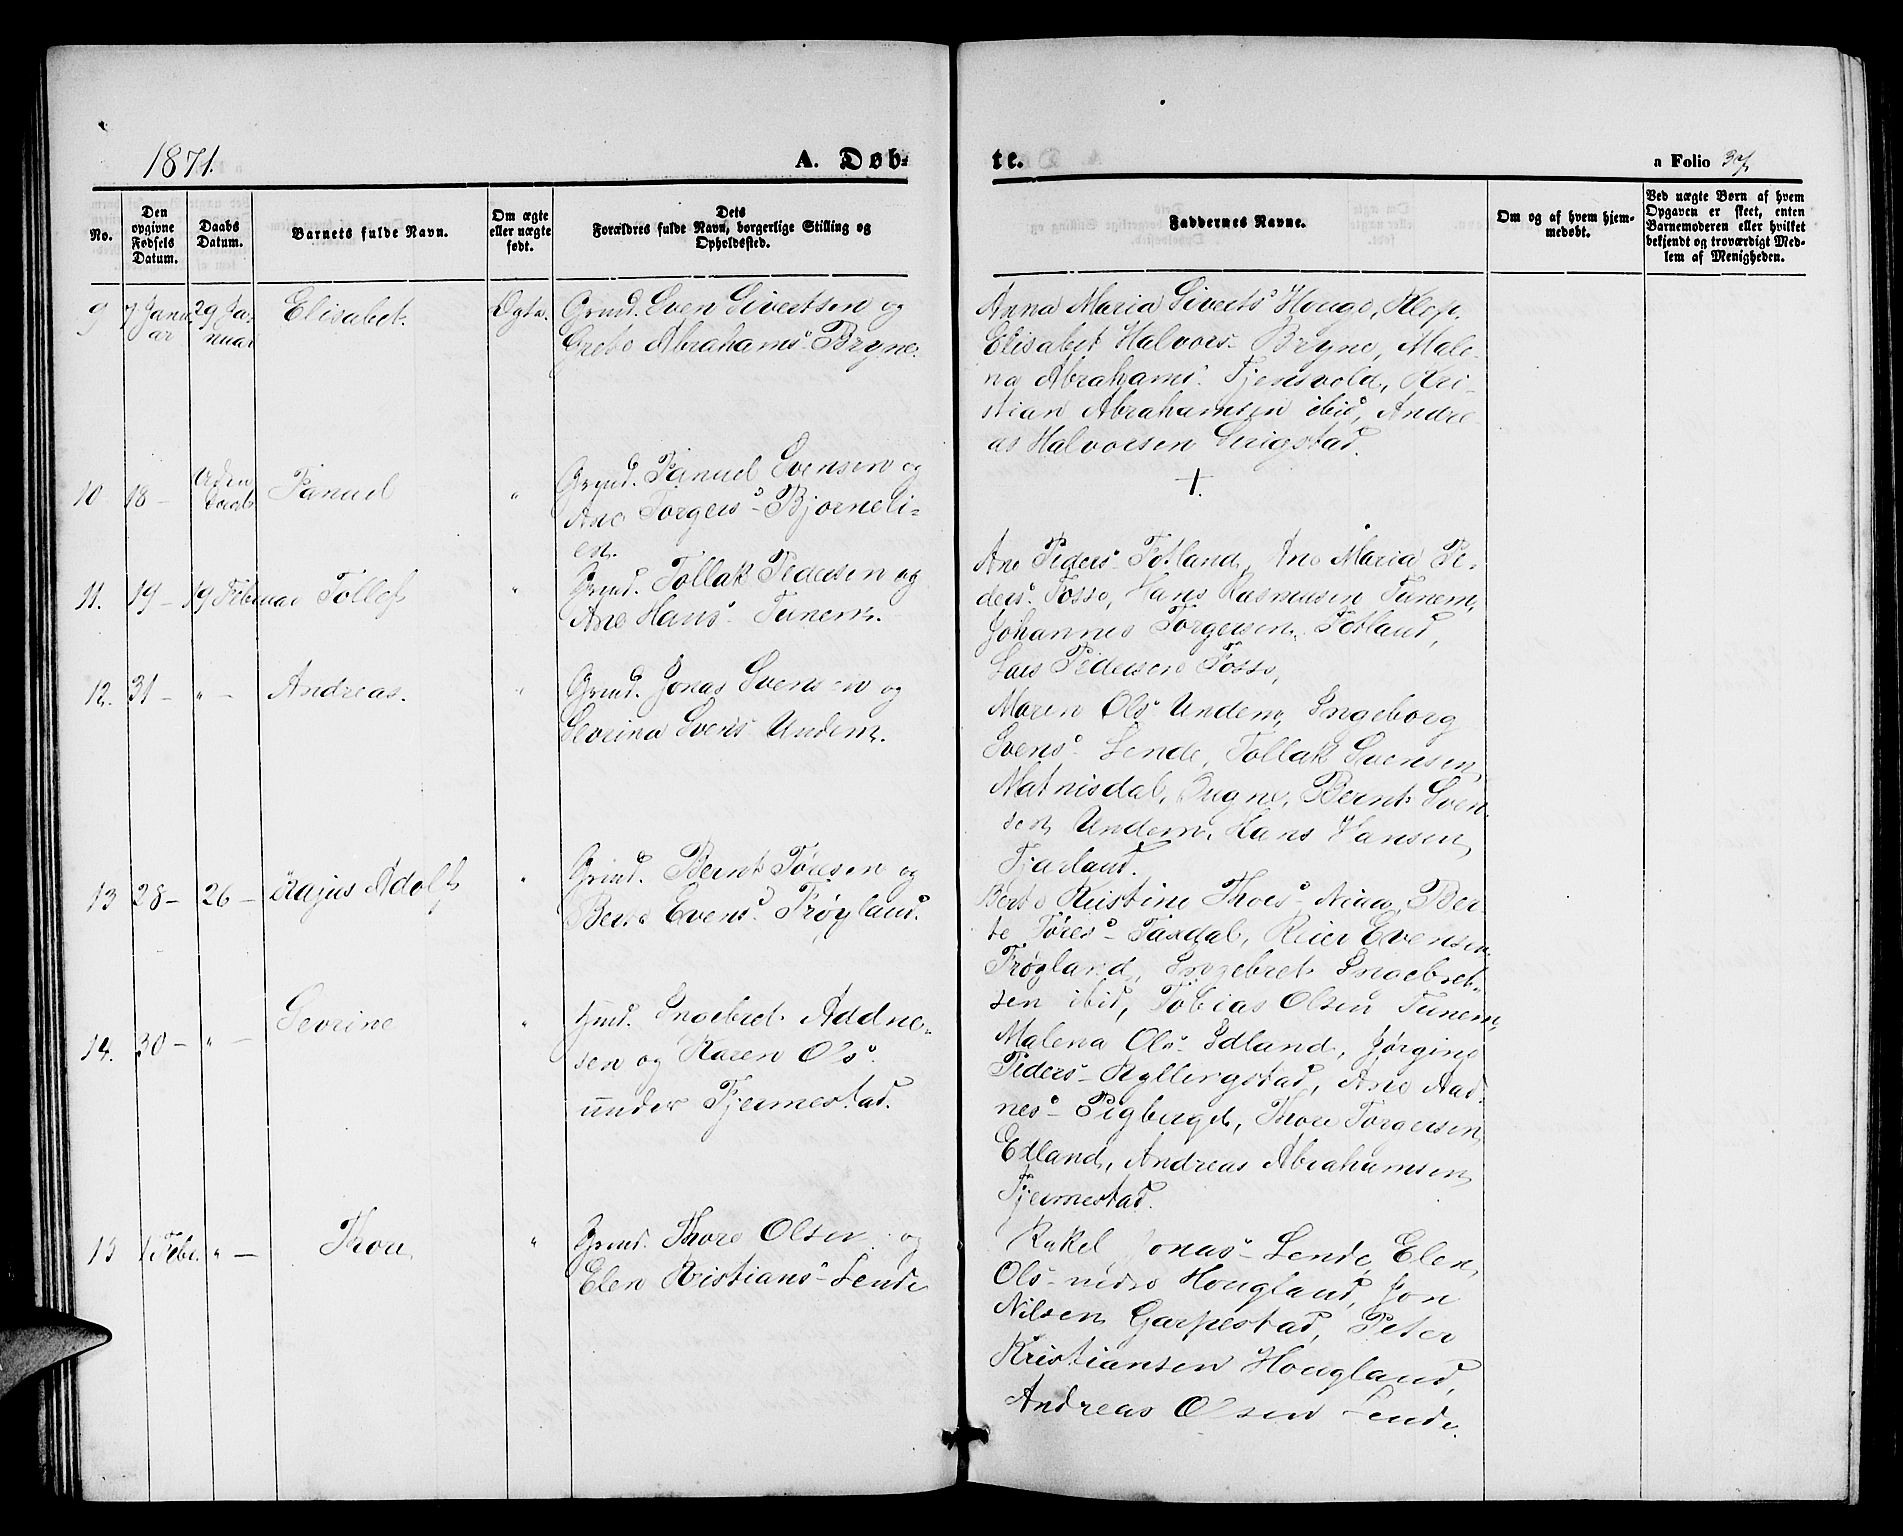 1871.
A. Døb-
te.
a Folio 37
No.
Den
opgivne
Fødsels
Datum.
Daabs
Datum.
Barnets fulde Navn.
Om ægte
eller uægte
født.
Dets
Forældres fulde Navn, borgerlige Stilling og
Opholdssted.
Faddernes Navne.
Om og af hvem hjem-
medøbt.
Ved uægte Børn af hvem
Opgaven er skeet, enten
Barnemoderen eller hvilket
bekjendt og troværdigt Med-
lem af Menigheden.
9 7 Janu 29 Ja Elisabet. Ægte. Grmd. Sven Sivertsen og
ar nuar Grete Abrahams Bryne.
Anna Maria Siverts Houge, Klep,
Elisabet Halvors- Bryne, Male-
na Abrahams. Tjensvold, Kri-
stian Abrahamsen ibid, Andre
as Halvorsen Sirigstad.
10 18 - Uden Fanuel " Grmd. Fanuel Evensen og
Daab Ane Torgers- Bjorneli-
en.
+.
11. 19 - 19 Februar Tollef " Grmd. Tollak Pedersen og
Ane Hans- Tunem.
Ane Peders- Fotland, Ane Maria Pe-
ders. Fosse, Hans Rasmusen Tunem,
Johannes Torgersen Fotland,
Lars Pedersen Fosse,
12. 31 - " - Andreas. " Grmd. Jonas Svensen og
Sevrina Svens Undem.
Maren Ols- Undem, Ingeborg
Svens- Lende, Tollak Svensen
Matnisdal, Bernt Sven
sen Undem, Hans Hansen
Fjarland.
13 28 - 26 - Rajus Adolf " Grmd. Bernt Tøresen og
Berte Evens- Frøyland.
Berte Kristine Thors- Ber-
te Tøres- Taxdal, Reier Evensen
Frøyland, Ingebret Ingebret-
sen ibid, Tobias Olsen Tunem,
14. 30 - " - Sevrine " Grmd. Ingebret Addne-
sen og Karen Ols-
under Fjermestad.
Malena Ols- Edland, Jørgine
Peders- Kyllingstad, Ane Aad-
nes- Pigberget, Thore Torgersen
Edland, Andreas Abrahamsen
Fjermestad.
15 1 Febr. " - Thore " Grmd. Thore Olsen og
Elen Kristians- Lende
Rakel Jonas- Lende, Elen
Ols- nedre Hougland, Jon
Nilsen Garpestad, Peter
Kristiansen Hougland,
Andreas Olsen Lende.